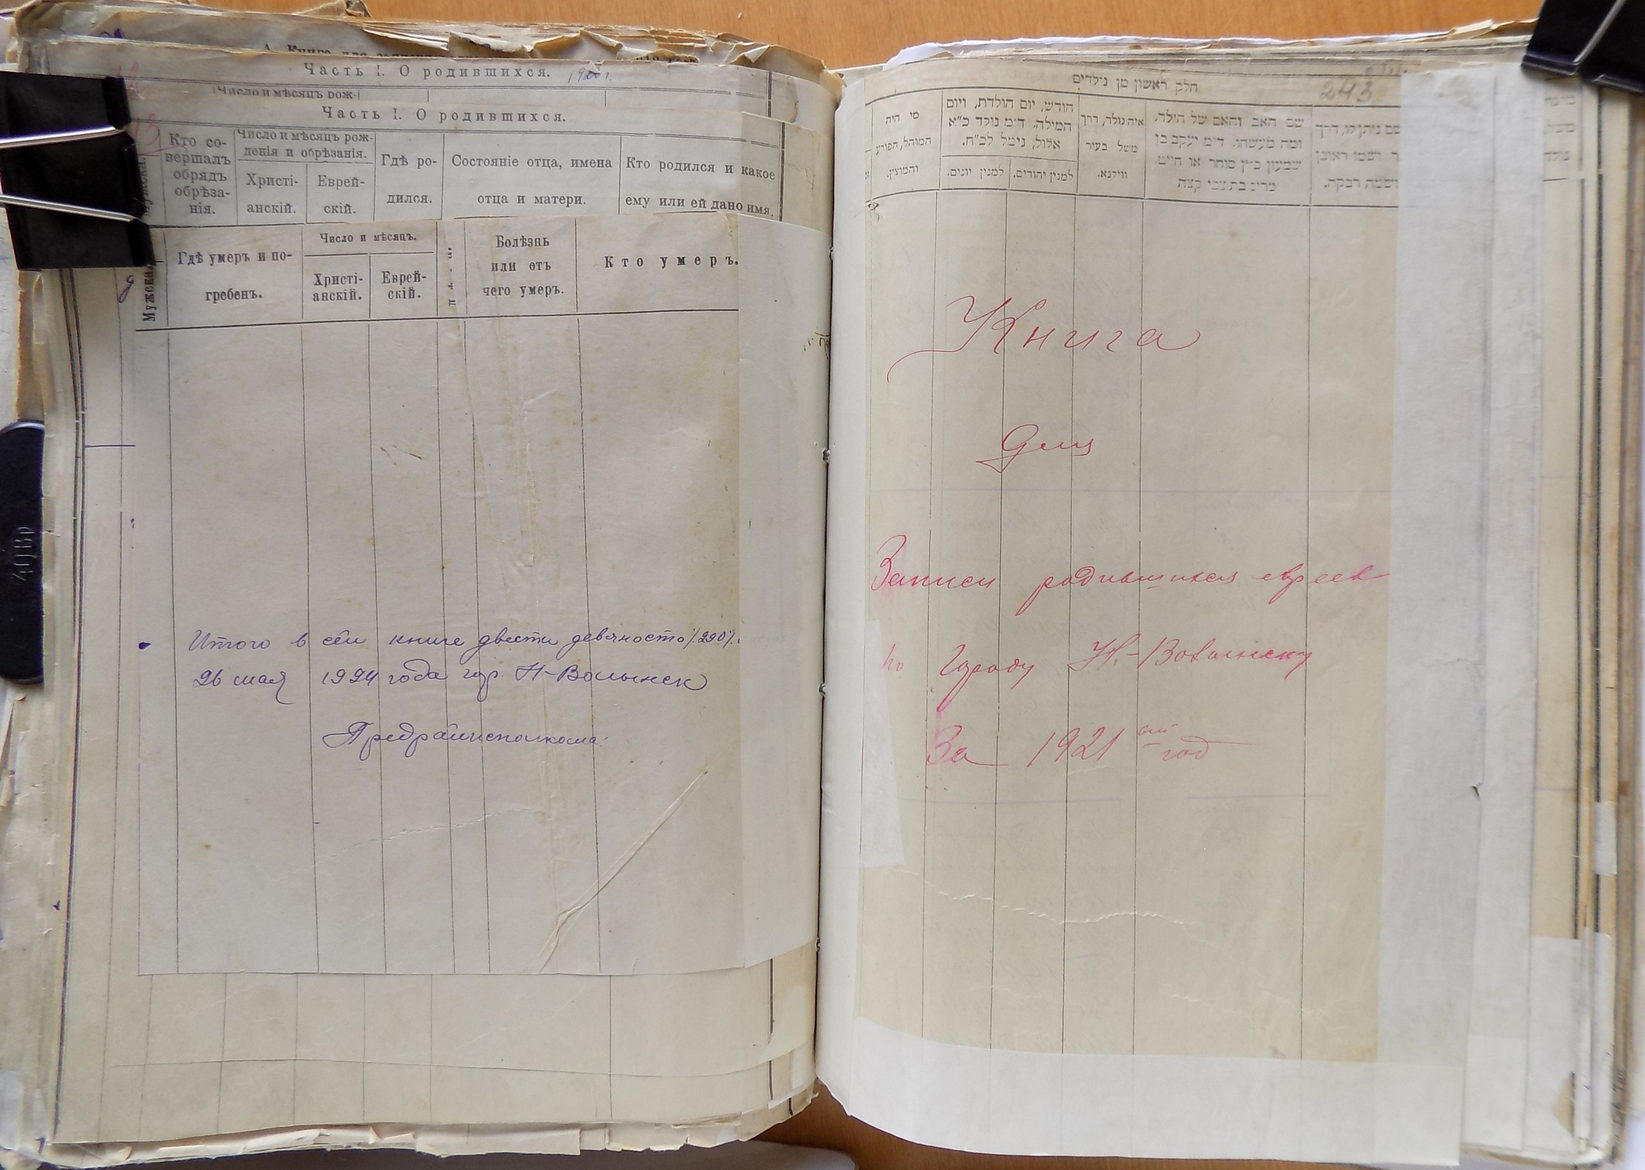 Часть I. О родившихся.
Число и мѣсяцъ рож-
Часть I. О родившихся.
Кто со-
вершалъ
обрядъ
обрѣза-
нія.
Число и мѣсяцъ рож-
денія и обрѣзанія.
Христі-
анскій.
Еврей-
скій.
Гдѣ ро-
дился.
Состояніе отца, имена
отца и матери.
Кто родился и какое
ему или ей дано имя.
Мужска
Гдѣ умеръ и по-
гребенъ.
Число и мѣсяцъ.
Христі-
анскій.
Еврей-
скій.
Болѣзнь
или отъ
чего умеръ.
Кто умеръ.
Итого в сей книге двести девяносто /290/.
26 мая 1924 года гор. Н-Волынск
Предрайисполкома:
חלק ראשון מן נילדים
243
מי היה
המוהל, הפורע
והמוצץ.
חודש, יום הולדת, ויום
המילה. ד״מ נולד כ״א
אלול, נימל לכ״ח.
למנין יהודים.
למנין יונים.
איה נולד, דרך
משל בעיר
ווילנא.
שם האב והאם של הילד,
ומה מעשהו. ד״מ יעקב בן
שמעון כ״ץ סוחר או חייט,
Книга
для
Записи родившихся евреев
по Городу Н.-Волынску
За 1921 ый год